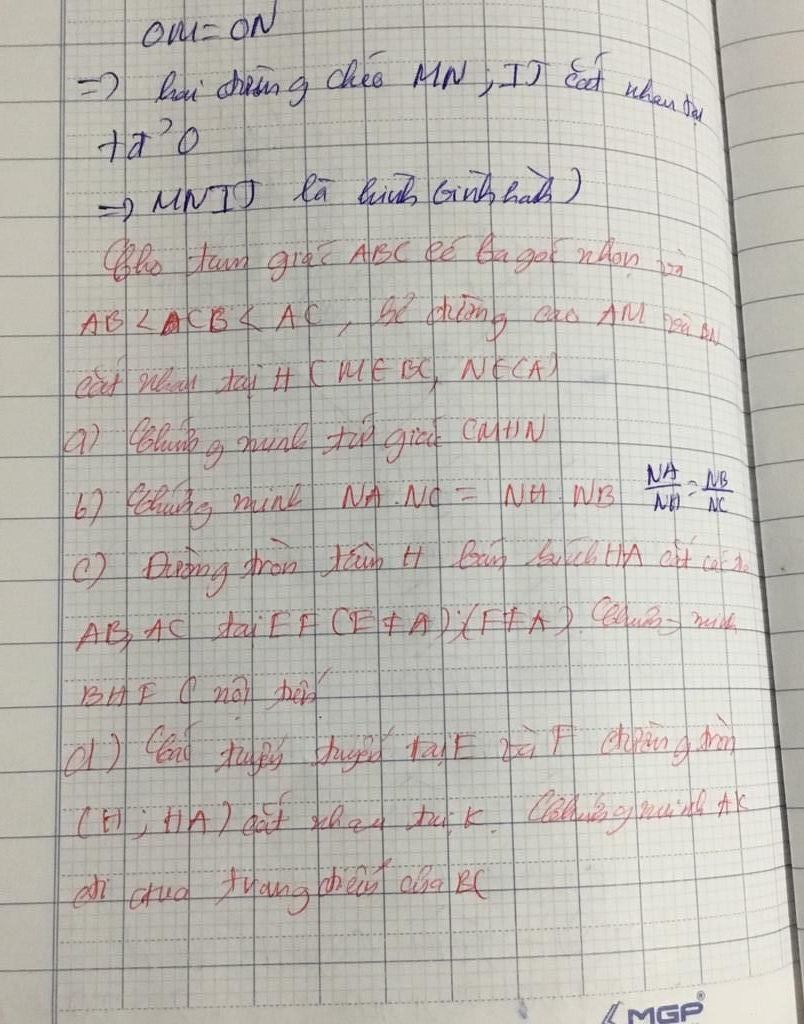 OM = ON
=> hai đường chéo MN, IJ cắt nhau tại
O
=> MNIJ là hình bình hành)
Cho tam giác ABC có ba góc nhọn và
AB < CB < AC, đường cao AM và BN
cắt nhau tại H (M ∈ BC, N ∈ CA)
a) Chứng minh tứ giác CMHN
b) Chứng minh NA.NC = NH.NB NA/NH = NB/NC
c) Đường tròn tâm H bán kính HA cắt các
AB, AC tại E F (E ≠ A); (F ≠ A). Chứng minh
BHF C nội tiếp
d) Các tuyếp tuyế tại E và F đường tròn
(H; HA) cắt nhau tại K. Chứng minh AK
đi qua trung điểm của BC
MGP